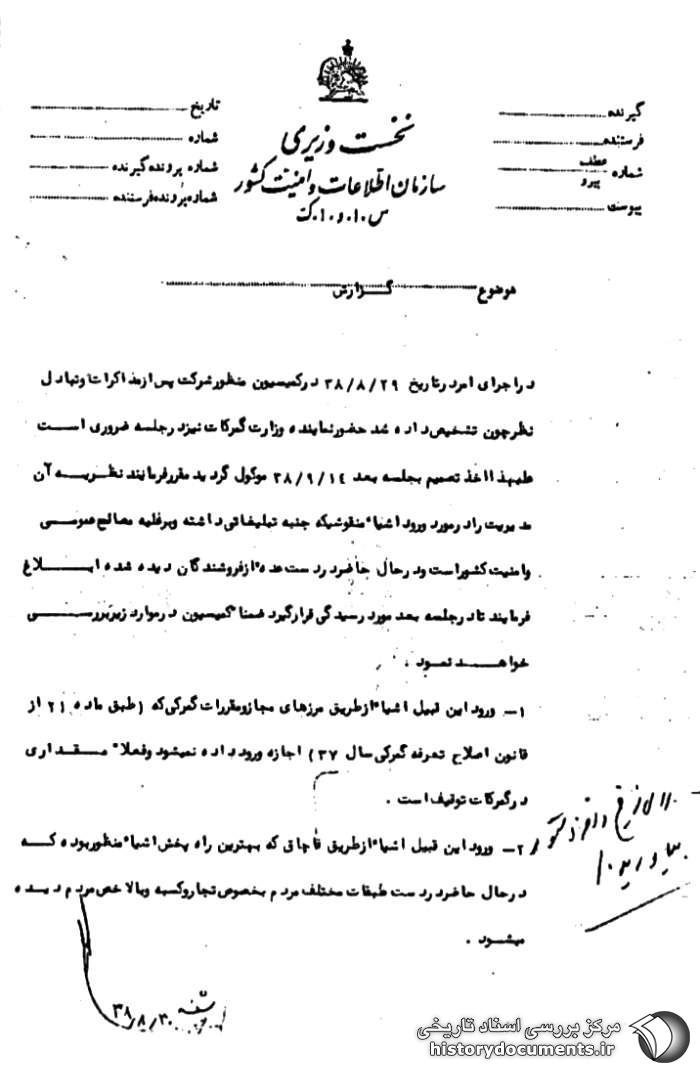 نخست وزیری
سازمان اطلاعات و امنیت کشور
س.ا.و.ا.ک
گیرنده
فرستنده
شماره عطف
پیرو
پیوست
تاریخ
شماره
شماره پرونده گیرنده
شماره پرونده فرستنده
موضوع گزارش
در اجرای امر در تاریخ ۳۸/۸/۲۹ در کمیسیون منظور شرکت پس از مذاکرات و تبادل
نظر چون تشخیص داده شد حضور نماینده وزارت گمرکات نیز در جلسه ضروری است
علیهذا اخذ تصمیم بجلسه بعد ۳۸/۹/۱۴ موکول گردید مقرر فرمایند نظریه آن
مدیریت را در مورد ورود اشیاء منقوشیکه جنبه تبلیغاتی داشته و بر علیه مصالح عمومی
و امنیت کشور است و در حال حاضر در دست عده‌ء از فروشندگان دیده شده ابلاغ
فرمایند تا در جلسه بعد مورد رسیدگی قرار گیرد ضمنا" کمیسیون در موارد زیر بررسی
خواهد نمود .
۱- ورود این قبیل اشیاء از طریق مرزهای مجاز و مقررات گمرکی که (طبق ماده ۲۱ از
قانون اصلاح تعرفه گمرکی سال ۳۷) اجازه ورود داده نمیشود و فعلا" مقداری
در گمرکات توقیف است .
۲- ورود این قبیل اشیاء از طریق قاچاق که بهترین راه پخش اشیاء منظور بوده که
در حال حاضر در دست طبقات مختلف مردم بخصوص تجار و کسبه و بالاخص مردم دیده
میشود .
بیاورید
۳۸/۸/۳۰
مرکز بررسی اسناد تاریخی
historydocuments.ir